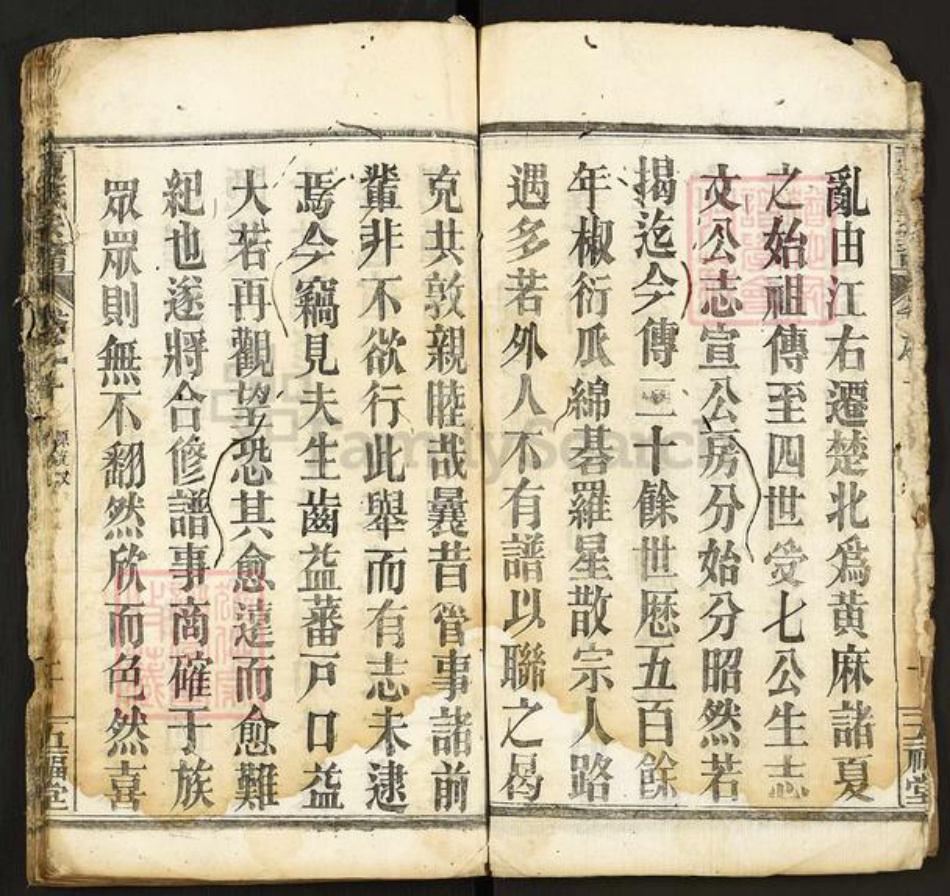 亂由江右遷楚北爲黃麻諸夏
之始祖傳至四世受七公生志
文公志宣公房分始分昭然若
揭迄今傳二十餘世歷五百餘
年椒衍瓜綿碁羅星散宗人路
遇多若外人不有譜以聯之曷
克共敦親睦哉曩昔管事諸前
輩非不欲行此舉而有志未逮
焉今竊見夫生齒益蕃戶口益
大若再觀望恐其愈遠而愈難
紀也遂將合修譜事商確于族
眾眾則無不翻然欣而色然喜
五福堂
FamilySearch